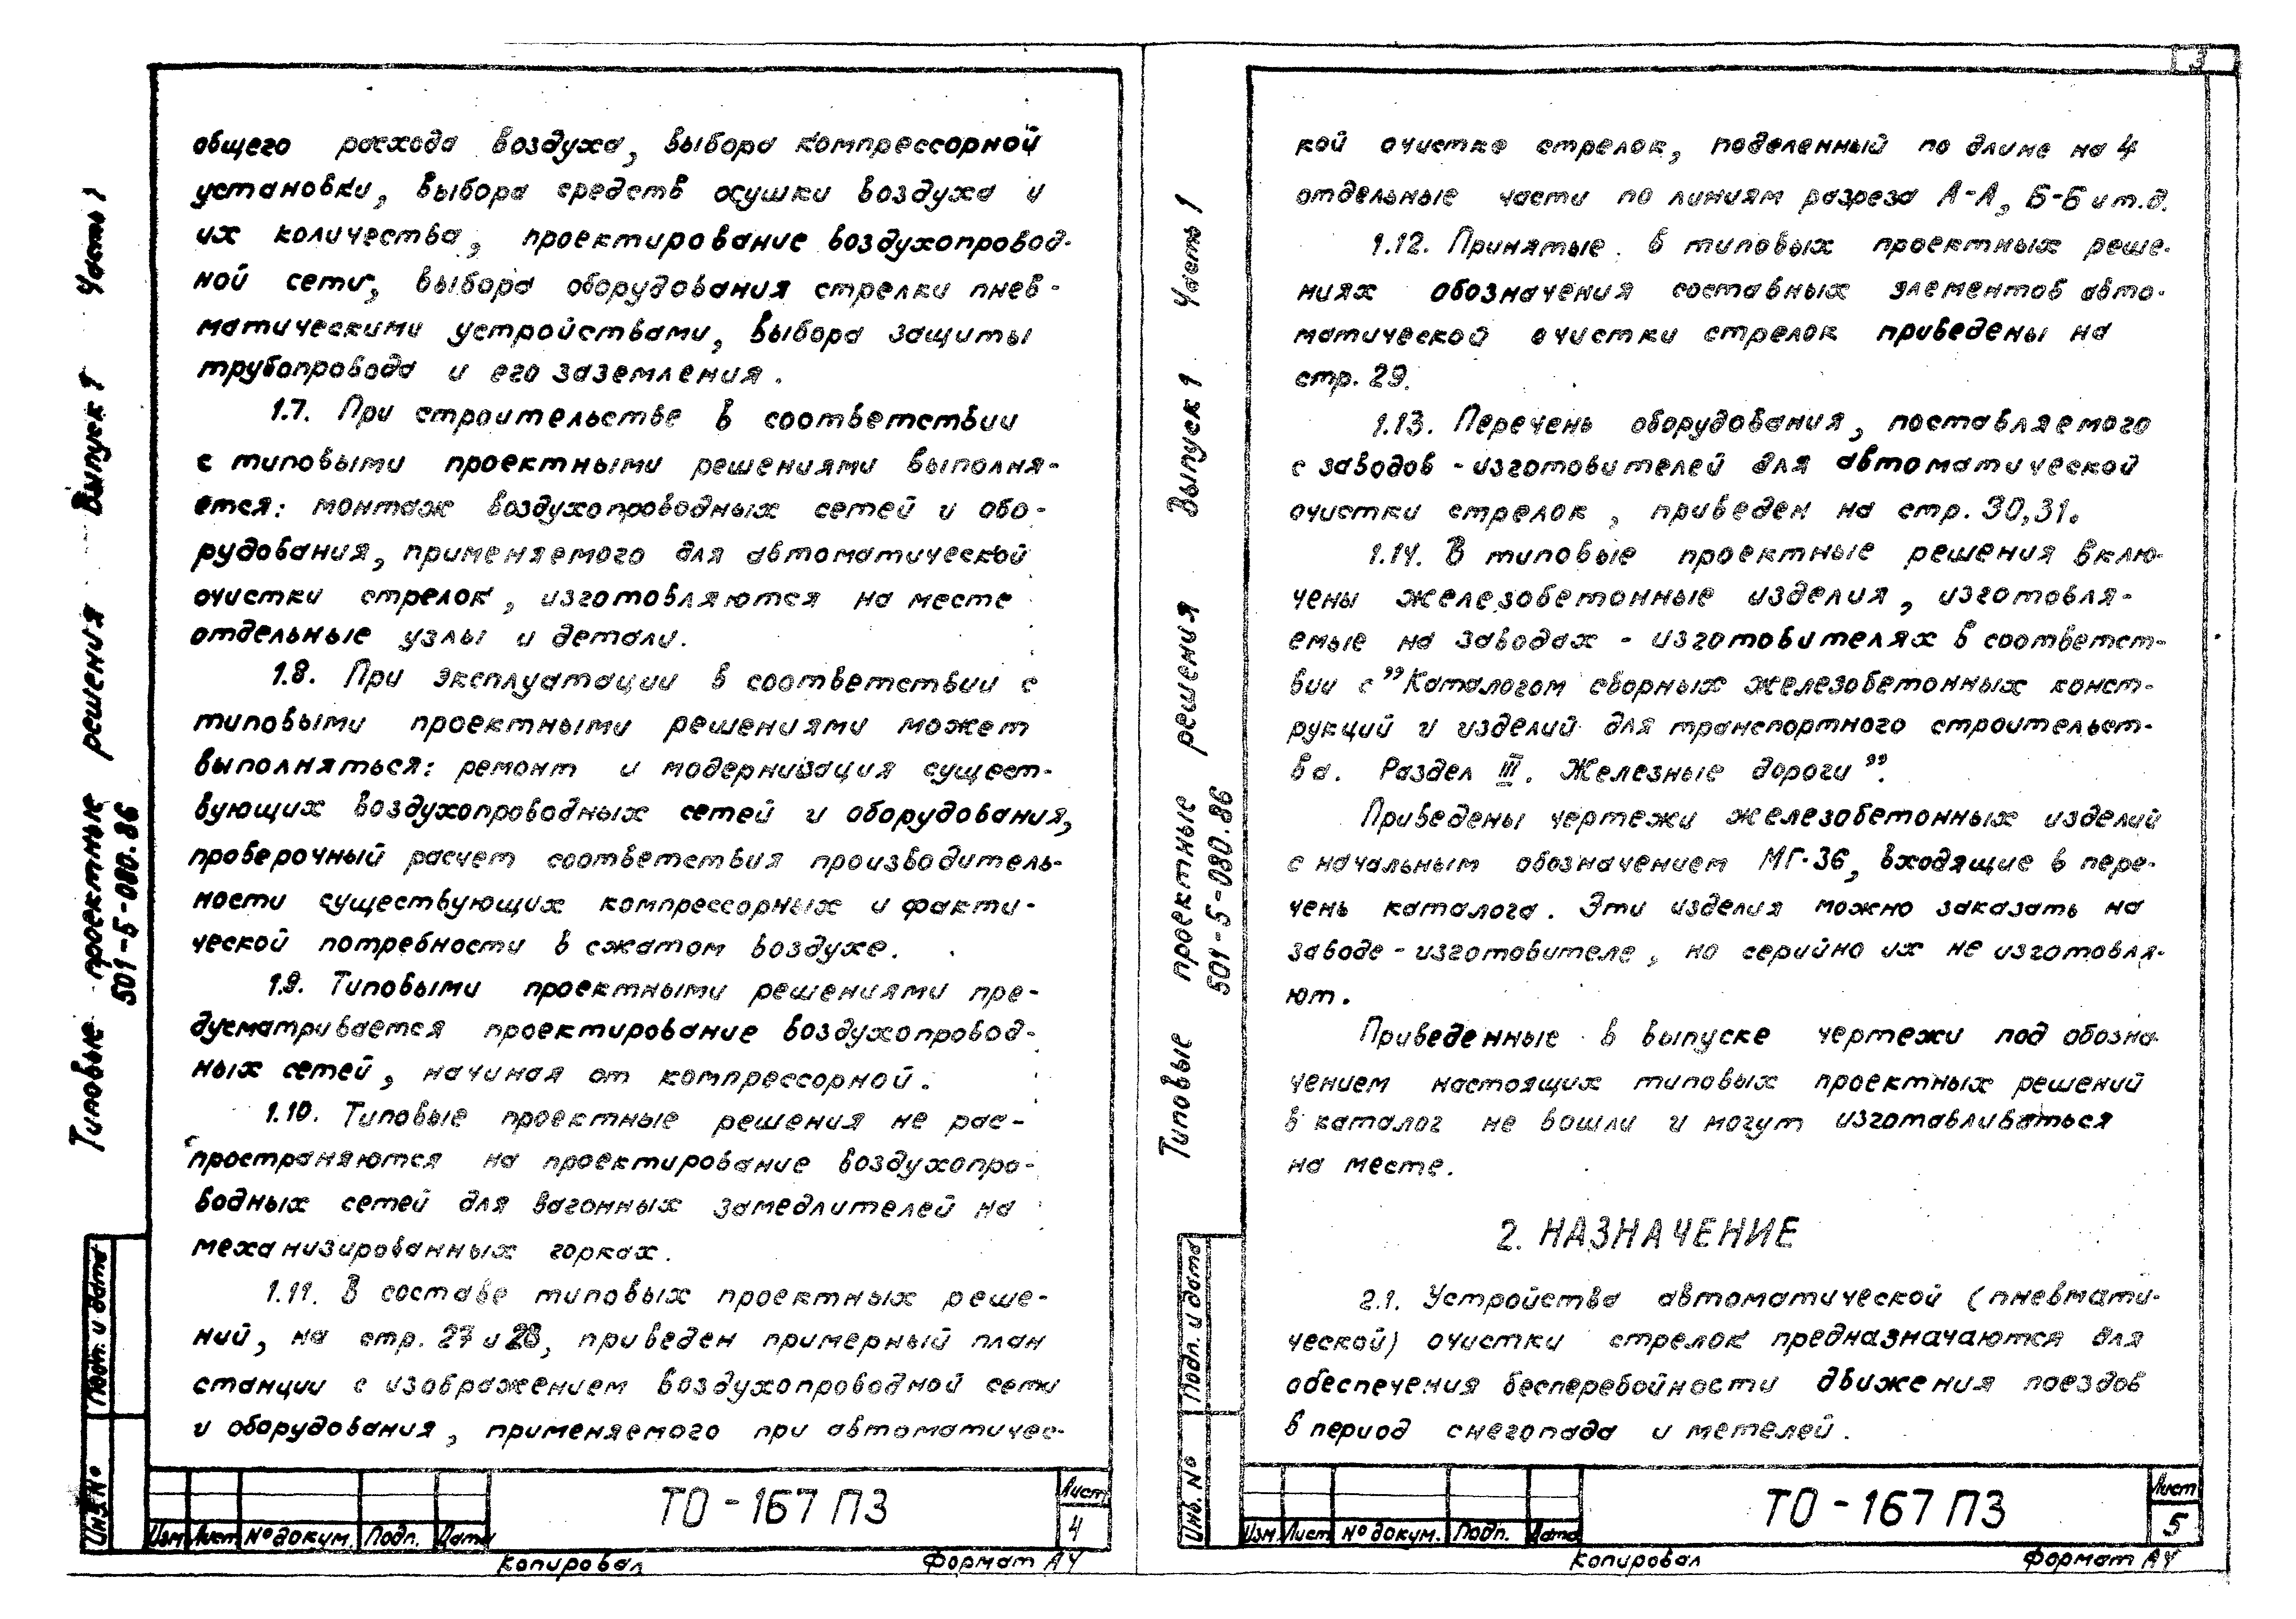 общего расхода воздуха, выбора компрессорной
установки, выбора средств осушки воздуха и
их количества, проектирование воздухопровод-
ной сети, выбора оборудования стрелки пнев-
матическими устройствами, выбора защиты
трубопровода и его заземления.
1.7. При строительстве в соответствии
с типовыми проектными решениями выполня-
ется: монтаж воздухопроводных сетей и обо-
рудования, применяемого для автоматической
очистки стрелок, изготовляются на месте
отдельные узлы и детали.
1.8. При эксплуатации в соответствии с
типовыми проектными решениями может
выполняться: ремонт и модернизация сущест-
вующих воздухопроводных сетей и оборудования,
проверочный расчет соответствия производитель-
ности существующих компрессорных и факти-
ческой потребности в сжатом воздухе.
1.9. Типовыми проектными решениями пре-
дусматривается проектирование воздухопровод-
ных сетей, начиная от компрессорной.
1.10. Типовые проектные решения не рас-
пространяются на проектирование воздухопро-
водных сетей для вагонных замедлителей на
механизированных горках.
1.11. В составе типовых проектных реше-
ний, на стр. 27 и 28, приведен примерный план
станции с изображением воздухопроводной сети
и оборудования, применяемого при автоматичес-
Типовые проектные решения Выпуск 1 Часть 1
501-5-080.86
Подп. и дата
Инв №
Изм Лист № докум. Подп. Дата
ТО-167 ПЗ
Лист
4
Копировал Формат А4
3
кой очистке стрелок, поделенный по длине на 4
отдельные части по линиям разреза А-А, Б-Б и т.д.
1.12. Принятые в типовых проектных реше-
ниях обозначения составных элементов авто-
матической очистки стрелок приведены на
стр. 29.
1.13. Перечень оборудования, поставляемого
с заводов-изготовителей для автоматической
очистки стрелок, приведен на стр. 30,31.
1.14. В типовые проектные решения вклю-
чены железобетонные изделия, изготовля-
емые на заводах-изготовителях в соответст-
вии с "Каталогом сборных железобетонных конст-
рукций и изделий для транспортного строительст-
ва. Раздел III. Железные дороги".
Приведены чертежи железобетонных изделий
с начальным обозначением МГ-36, входящие в пере-
чень каталога. Эти изделия можно заказать на
заводе-изготовителе, но серийно их не изготовля-
ют.
Приведенные в выпуске чертежи под обозна-
чением настоящих типовых проектных решений
в каталог не вошли и могут изготавливаться
на месте.
2. НАЗНАЧЕНИЕ
2.1. Устройства автоматической (пневмати-
ческой) очистки стрелок предназначаются для
обеспечения бесперебойности движения поездов
в период снегопада и метелей.
Типовые проектные решения Выпуск 1 Часть 1
501-5-080.86
Подп. и дата
Инв. №
Изм Лист № докум. Подп. Дата
ТО-167 ПЗ
Лист
5
Копировал Формат А4